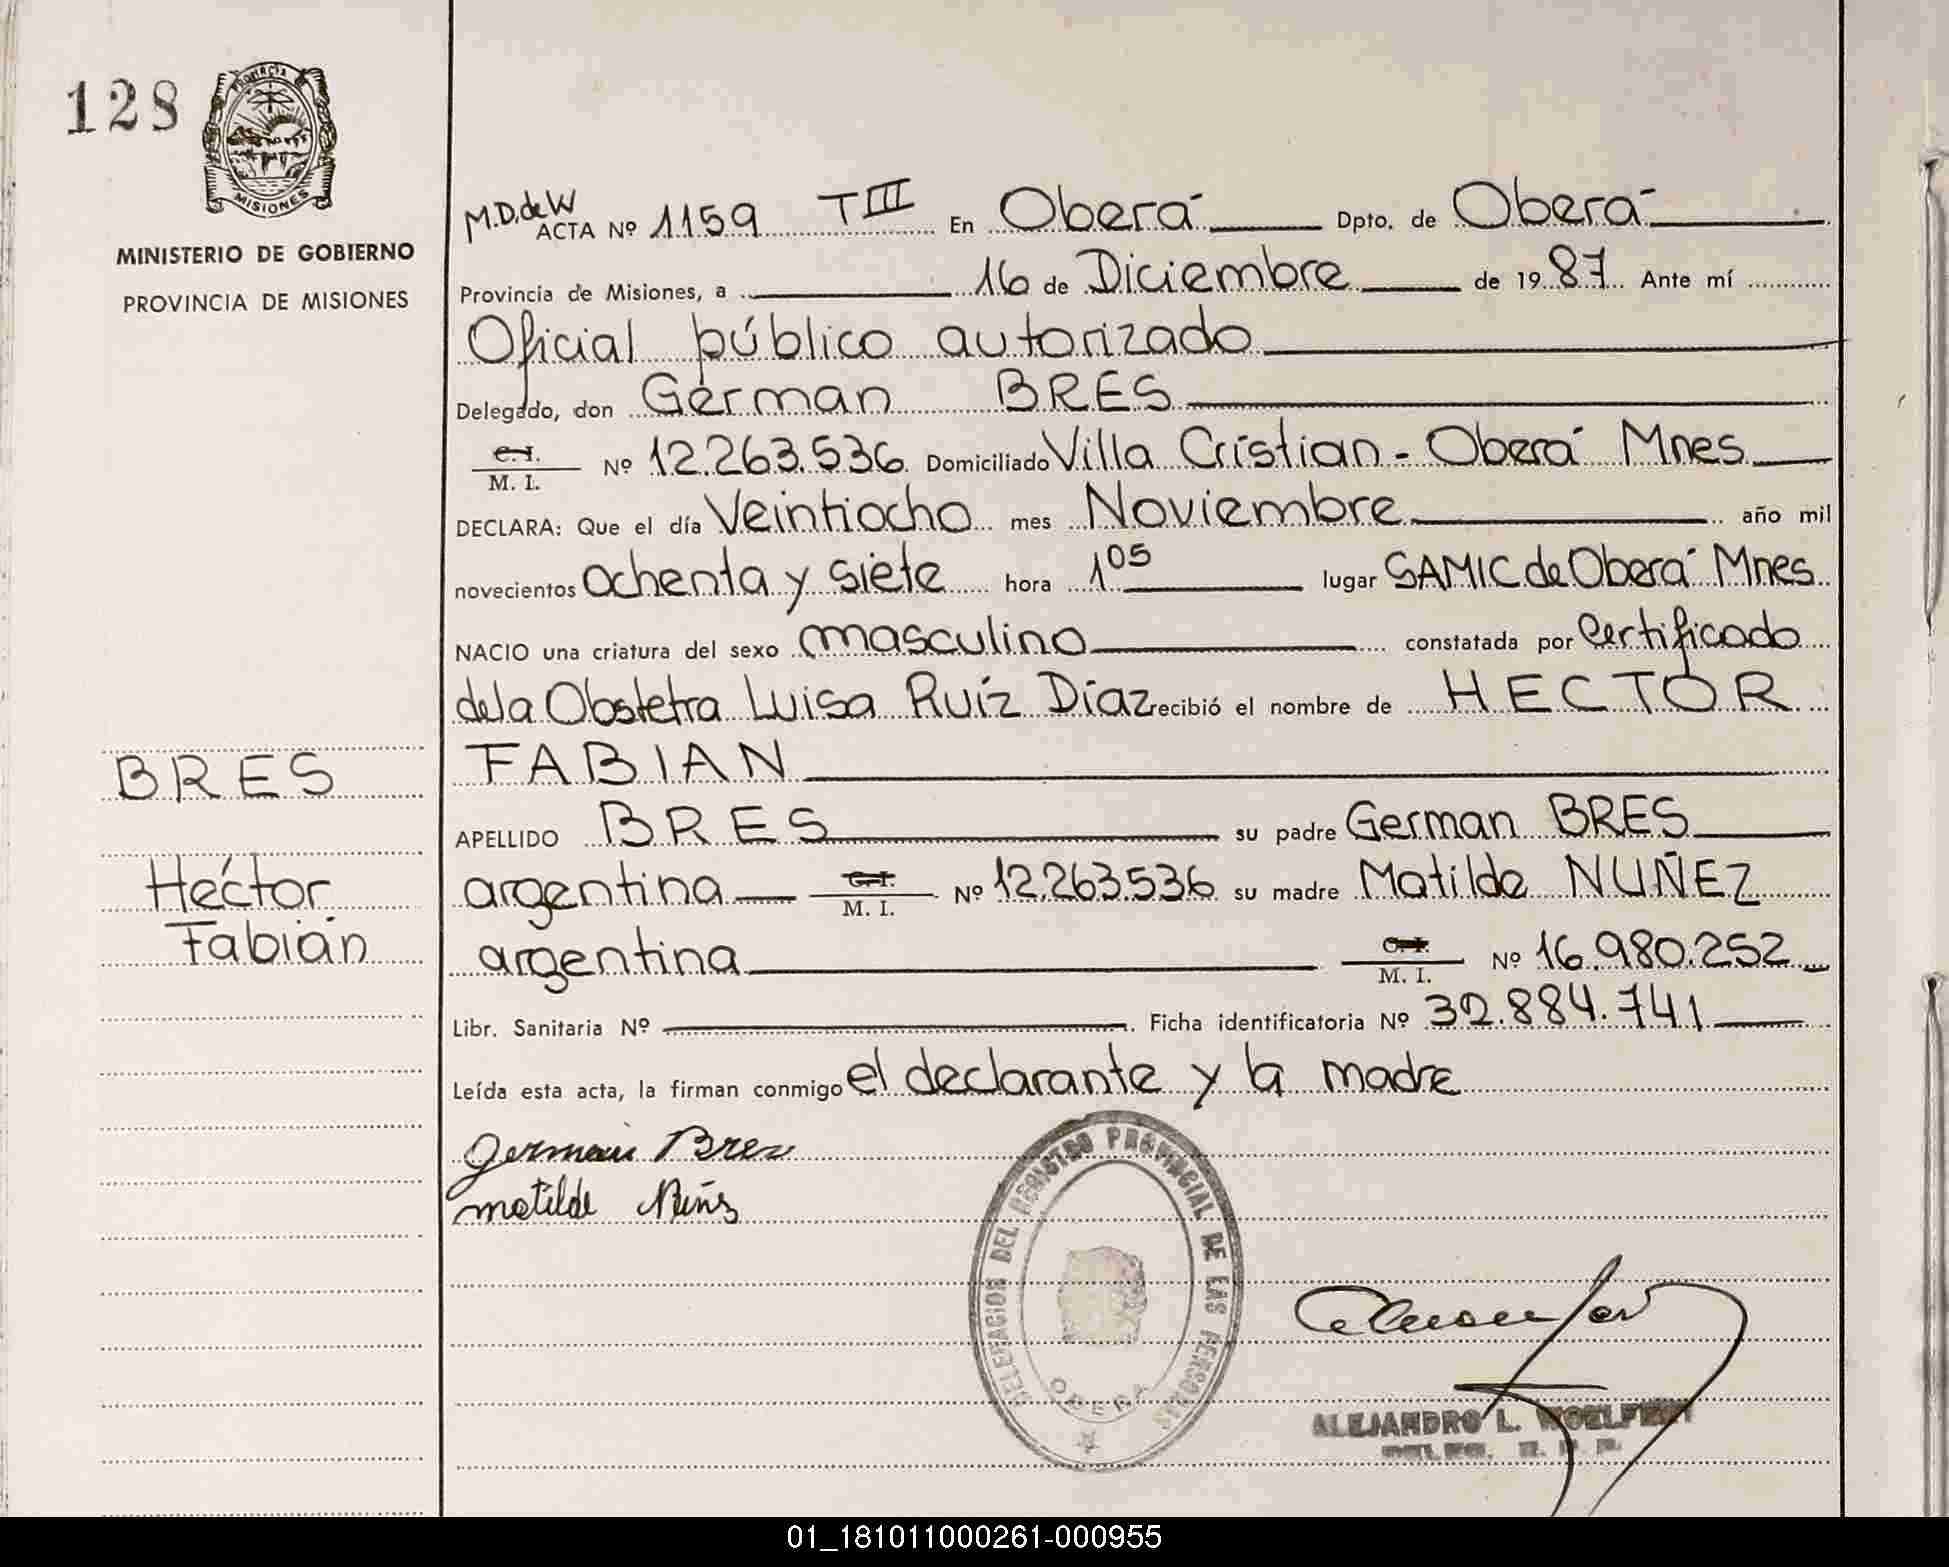 128
PROVINCIA
MISIONES
MINISTERIO DE GOBIERNO
PROVINCIA DE MISIONES
M.D.deW
ACTA Nº 1159 TIII En Oberá Dpto. de Oberá
Provincia de Misiones, a 16 de Diciembre de 1987 Ante mí
Oficial público autorizado
Delegado, don Gérman BRES
C.I. M. I. Nº 12.263.536 Domiciliado Villa Cristian - Oberá Mnes
DECLARA: Que el día Veintiocho mes Noviembre año mil
novecientos ochenta y siete hora 1 05 lugar SAMIC de Oberá Mnes
NACIO una criatura del sexo masculino constatada por Certificado
de la Obstetra Luisa Ruíz Díaz recibió el nombre de HECTOR
FABIAN
APELLIDO BRES su padre German BRES
argentina C.I. M. I. Nº 12.263.536 su madre Matilde NUÑEZ
argentina C.I. M. I. Nº 16.980.252
Libr. Sanitaria Nº Ficha identificatoria Nº 32.884.741
Leída esta acta, la firman conmigo el declarante y la madre
BRES
Héctor
Fabián
German Bres
matilde
DELEGACION DEL REGISTRO PROVINCIAL DE LAS PERSONAS
OBERA
ALEJANDRO L.
01_181011000261-000955